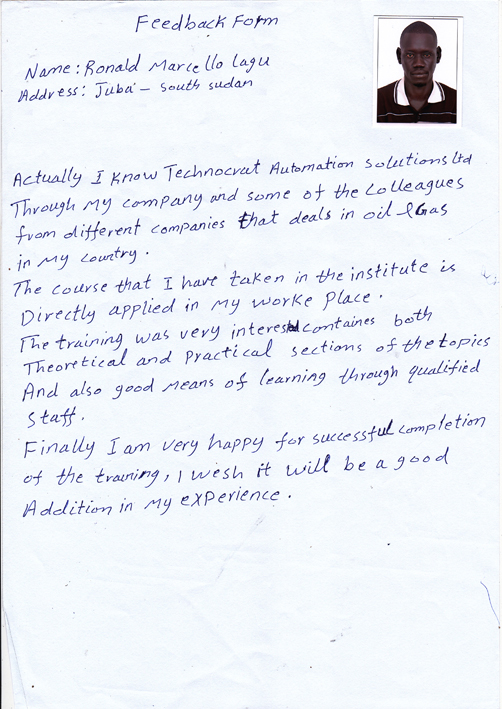 Feedback Form
Name: Ronald Marcello Lagu
Address: Juba - South sudan
Actually I know Technocrat Automation solutions Ltd
Through My company and some of the Colleagues
from different companies that deals in oil & Gas
in My country.
The course that I have taken in the institute is
Directly applied in My worke place.
The training was very interest containes both
Theoretical and practical sections of the topics
And also good means of learning through qualified
Staff.
Finally I am very happy for successful completion
of the training, I wesh it will be a good
Addition in My experience.